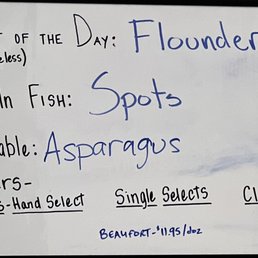 OF THE DAY: Flounder
less)
FISH: Spots
able: Asparagus
ers-
s-Hand Select Single Selects Cl
BEAUFORT-$11.95/doz